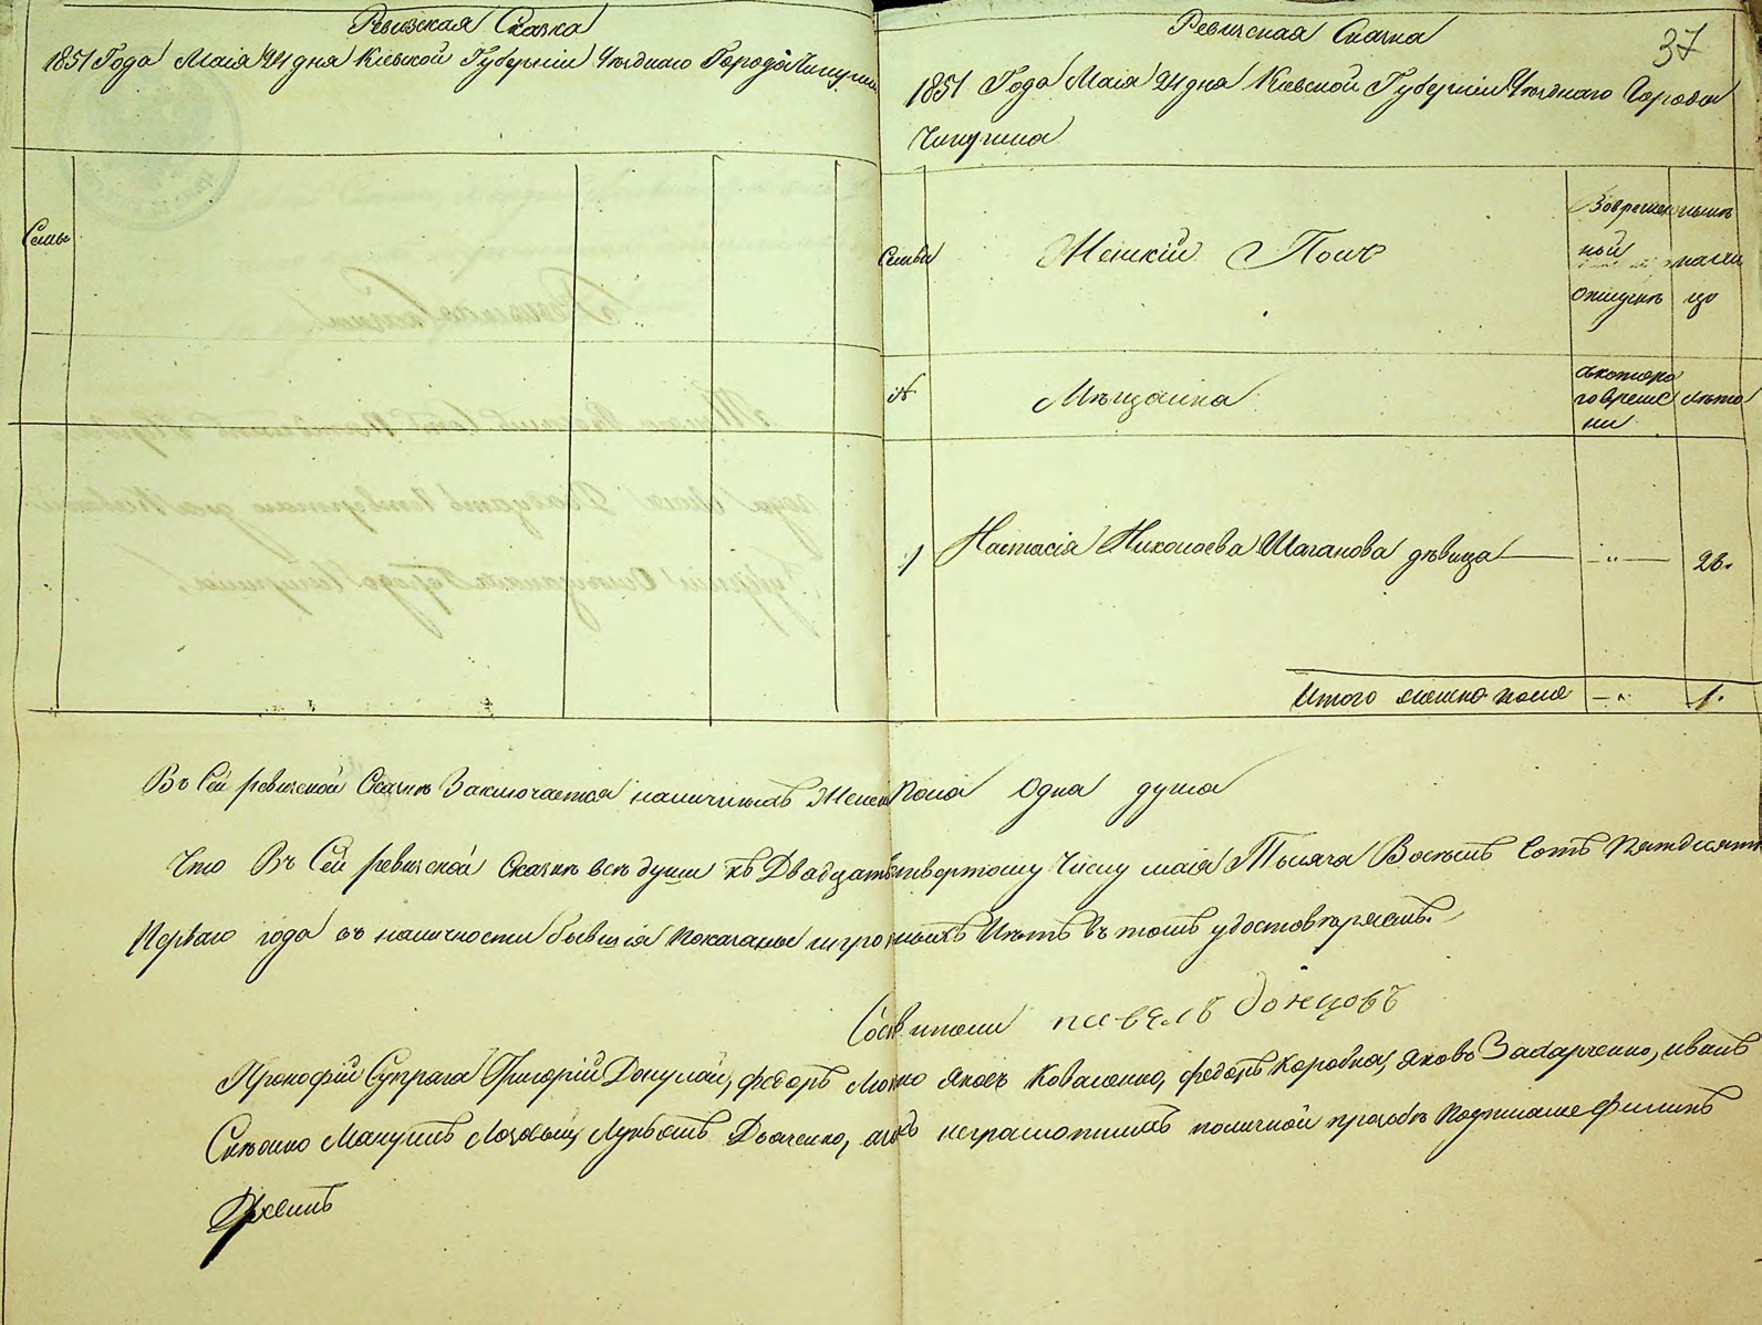 Ревизская Сказка
1851 Года Маія 24 дня Кіевской Губерніи Уѣзднаго Города Чигирин
Семьи
Ревизская Сказка
37
1851 Года Маія 24 дня Кіевской Губерніи Уѣзднаго Города
Чигирина
Семьи
Женскій Полъ
Вовремен
ной
отлучкѣ
нынѣ
налиц
цо
№
Мѣщанка
съкоторо
го време
ни
лѣта
1 Настасія Николаева Шаганова дѣвица — „ — 28.
Итого женска пола — „ 1.
Въ Сей ревизской Сказкѣ Заключается наличныхъ Женск Пола Одна душа
Что Въ Сей ревизской Сказкѣ всѣ души къ Двадцать четвертому Числу маія Тысяча Восемь Сотъ Пятдесятъ
Перваго года въ наличности бывшія показаны и прописныхъ Нѣтъ въ томъ удостовѣряемъ.
павелъ донцовъ
Прокофій Супрага Григорій федоръ Яковъ Коваленко, федоръ Коробка, Яковъ Захарченко, иванъ
Лозовый, Дьяченко, неграмотныхъ по личной прозьбѣ Подписалъ Филипъ